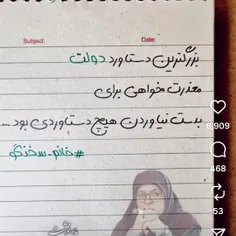 Subject: Date:
بزرگترین دستاورد دولت
معذرت خواهی برای
بدست نیاوردن هیچ دستاوردی بود...
#خانم_سخنگو
8,909
468
53